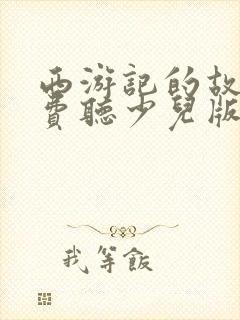 西游記的故
費聽少兒版
我等飯